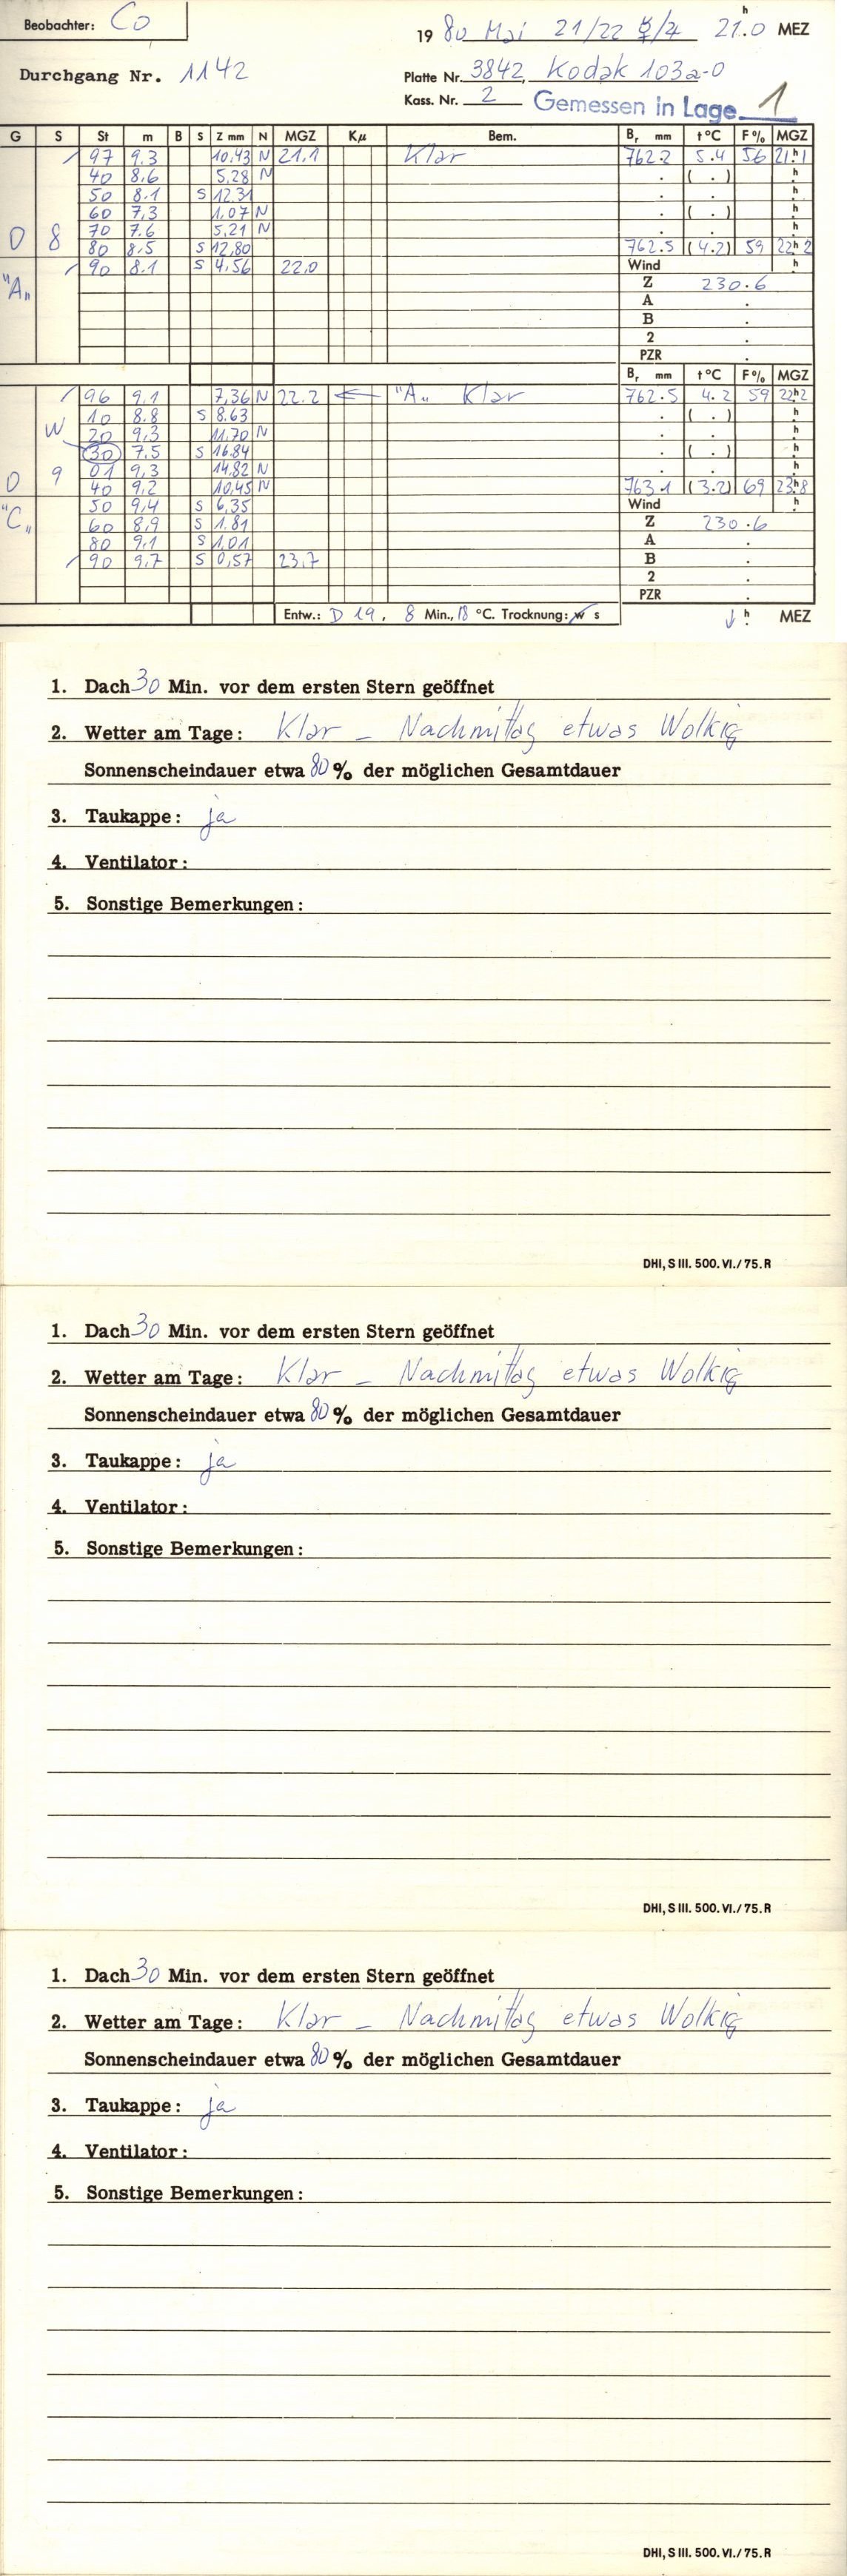 Beobachter: Co
19 80 Mai 21/22 ☿/♃ 21.0 h MEZ
Durchgang Nr. 1142
Platte Nr. 3842, Kodak 103a-0
Kass. Nr. 2 Gemessen in Lage 1
G S St m B S Z mm N MGZ Kμ Bem. Br mm t°C F% MGZ
97 9.3 10,43 N 21.1 Klar 762.2 5.4 56 21h1
40 8.6 5,28 N . ( . ) h
50 8.1 S 12.31 . . h
60 7,3 1,07 N . ( . ) h
70 7.6 5,21 N . . h
O 8 80 8,5 S 12,80 762.5 (4.2) 59 22h2
"A" 90 8.1 S 4,56 22,0 Wind h
Z 230.6
A .
B .
2 .
PZR .
Br mm t°C F% MGZ
96 9,1 7,36 N 22.2 ← "A" Klar 762.5 4.2 59 22h2
10 8.8 S 8.63 . ( . ) h
W 20 9,3 11,70 N . . h
30 7.5 S 16.84 . ( . ) h
9 01 9,3 14,82 N . . h
O 40 9,2 10,45 N 763.1 (3.2) 69 23h8
"C" 50 9,4 S 6,35 Wind h
60 8,9 S 1.81 Z 230.6
80 9.1 S 1,01 A .
90 9,7 S 0,57 23,7 B .
2 .
PZR .
Entw.: D 19, 8 Min., 18 °C. Trocknung: w s ↓ h MEZ
1. Dach 30 Min. vor dem ersten Stern geöffnet
2. Wetter am Tage: Klar – Nachmittag etwas Wolkig
Sonnenscheindauer etwa 80 % der möglichen Gesamtdauer
3. Taukappe: ja
4. Ventilator:
5. Sonstige Bemerkungen:
DHI, S III. 500. VI./75. R
1. Dach 30 Min. vor dem ersten Stern geöffnet
2. Wetter am Tage: Klar – Nachmittag etwas Wolkig
Sonnenscheindauer etwa 80 % der möglichen Gesamtdauer
3. Taukappe: ja
4. Ventilator:
5. Sonstige Bemerkungen:
DHI, S III. 500. VI./75. R
1. Dach 30 Min. vor dem ersten Stern geöffnet
2. Wetter am Tage: Klar – Nachmittag etwas Wolkig
Sonnenscheindauer etwa 80 % der möglichen Gesamtdauer
3. Taukappe: ja
4. Ventilator:
5. Sonstige Bemerkungen:
DHI, S III. 500. VI./75. R